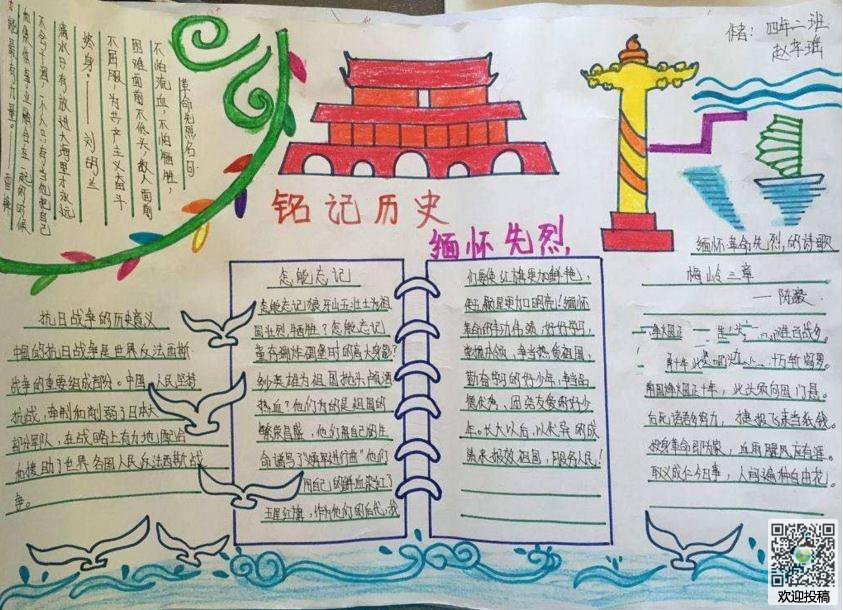 作者：四年二班
赵苯瑶
革命先烈名句
不怕流血，不怕牺牲，
困难面前不低头，敌人面前
不屈服，为共产主义奋斗
终身。——刘胡兰
滴水只有放进大海里才永远
不会干涸，一个人只有当他把自己
和集体事业融合在一起的时候
才能最有力量。——雷锋
铭记历史
缅怀先烈
抗日战争的历史意义
中国的抗日战争是世界反法西斯
战争的重要组成部分。中国人民坚持
抗战，牵制和削弱了日本大
部分军队，在战略上有力地配合
和援助了世界各国人民反法西斯战
争。
怎能忘记
怎能忘记狼牙山五壮士为祖
国壮烈牺牲？怎能忘记
董存瑞炸碉堡时的高大身影？
多少英雄为祖国抛头颅洒
热血？他们为的是祖国的
繁荣昌盛，他们用自己的生
命谱写了"义勇军进行曲"他们
用自己的鲜血染红了
五星红旗，作为他们的后代，我
们要使红旗更加鲜艳，
使五星更加明亮！缅怀
革命的丰功伟绩，好好学习，
掌握本领，争当热爱祖国，
勤奋学习的好少年，争当品
德优秀，团结友爱的好少
年。长大以后，以优异的成
绩来报效祖国，服务人民！
缅怀革命先烈的诗歌
梅岭三章
——陈毅
南国烽烟正十年，此头须向国门悬。
后死诸君多努力，捷报飞来当纸钱。
投身革命即为家，血雨腥风应有涯。
取义成仁今日事，人间遍种自由花。
欢迎投稿